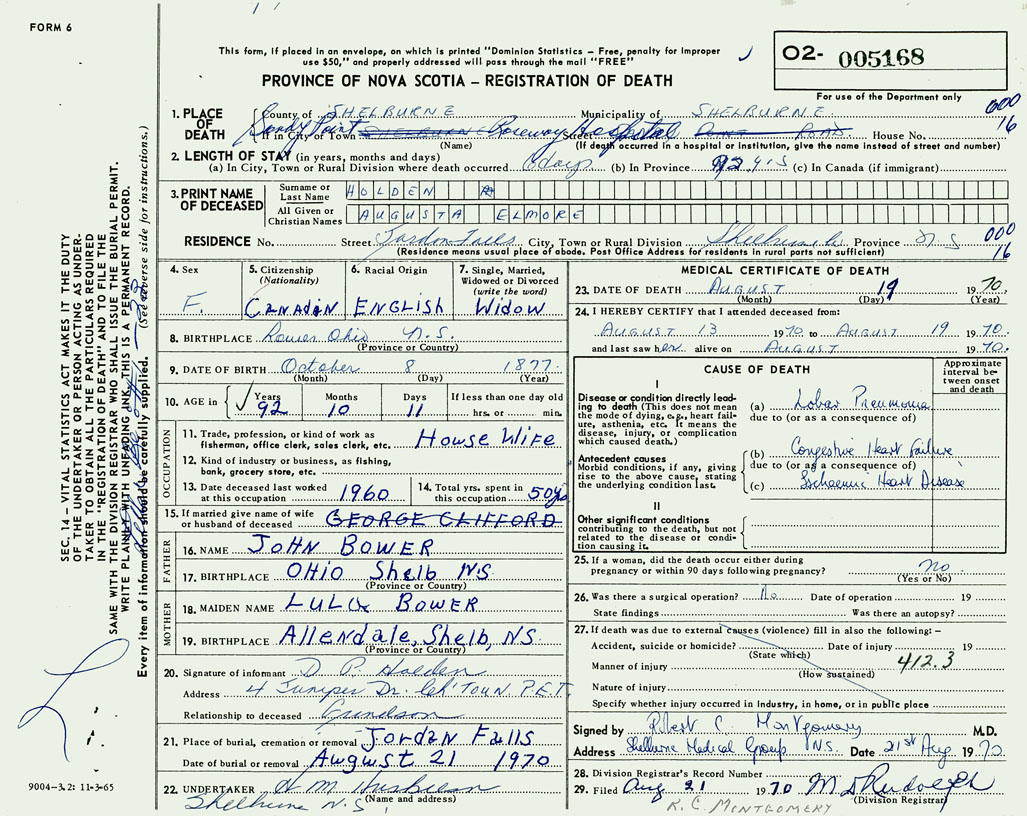 FORM 6
This form, if placed in an envelope, on which is printed "Dominion Statistics – Free, penalty for improper
use $50," and properly addressed will pass through the mail "FREE"
PROVINCE OF NOVA SCOTIA – REGISTRATION OF DEATH
O2- 005168
For use of the Department only
1. PLACE OF DEATH
County of SHELBURNE Municipality of SHELBURNE
000
16
If in City or Town Sandy Point Roseway Hospital Street House No.
(Name) (If death occurred in a hospital or institution, give the name instead of street and number)
2. LENGTH OF STAY (in years, months and days)
(a) In City, Town or Rural Division where death occurred 6 days (b) In Province 92 yrs (c) In Canada (if immigrant)
3. PRINT NAME OF DECEASED
Surname or Last Name HOLDEN
All Given or Christian Names AUGUSTA ELMORE
RESIDENCE No. Street Jordan Falls City, Town or Rural Division Shelburne Province N S
000
16
(Residence means usual place of abode. Post Office Address for residents in rural parts not sufficient)
4. Sex F.
5. Citizenship (Nationality) CANADIAN
6. Racial Origin ENGLISH
7. Single, Married, Widowed or Divorced (write the word) WIDOW
8. BIRTHPLACE Lower Ohio N.S.
(Province or Country)
9. DATE OF BIRTH October 8 1877
(Month) (Day) (Year)
10. AGE in Years 92 Months 10 Days 11 If less than one day old hrs. or min.
OCCUPATION
11. Trade, profession, or kind of work as fisherman, office clerk, sales clerk, etc. House Wife
12. Kind of industry or business, as fishing, bank, grocery store, etc.
13. Date deceased last worked at this occupation 1960
14. Total yrs. spent in this occupation 50 yrs
15. If married give name of wife or husband of deceased GEORGE CLIFFORD
FATHER
16. NAME JOHN BOWER
17. BIRTHPLACE OHIO Shelb N.S.
(Province or Country)
MOTHER
18. MAIDEN NAME LULU BOWER
19. BIRTHPLACE Allendale, Shelb, NS.
(Province or Country)
20. Signature of informant D. P. Holden
Address 4 Juniper Dr. Ch'Town P.E.I.
Relationship to deceased Grandson
21. Place of burial, cremation or removal Jordan Falls
Date of burial or removal August 21 1970
22. UNDERTAKER
(Name and address)
Shelburne N.S.
MEDICAL CERTIFICATE OF DEATH
23. DATE OF DEATH AUGUST 19 1970
(Month) (Day) (Year)
24. I HEREBY CERTIFY that I attended deceased from:
AUGUST 13 1970 to AUGUST 19 1970.
and last saw her alive on AUGUST 1970.
CAUSE OF DEATH
Approximate interval between onset and death
I
Disease or condition directly leading to death (This does not mean the mode of dying, e.g., heart failure, asthenia, etc. It means the disease, injury, or complication which caused death.)
(a) Lobar Pneumonia
due to (or as a consequence of)
Antecedent causes
Morbid conditions, if any, giving rise to the above cause, stating the underlying condition last.
(b) Congestive Heart Failure
due to (or as a consequence of)
(c) Ischaemic Heart Disease
II
Other significant conditions contributing to the death, but not related to the disease or condition causing it.
25. If a woman, did the death occur either during pregnancy or within 90 days following pregnancy? no
(Yes or No)
26. Was there a surgical operation? No Date of operation 19
State findings Was there an autopsy?
27. If death was due to external causes (violence) fill in also the following: –
Accident, suicide or homicide? Date of injury 19
(State which)
412.3
Manner of injury
(How sustained)
Nature of injury
Specify whether injury occurred in Industry, in home, or in public place
Signed by Robert C. Montgomery M.D.
Address Shelburne Medical Group NS. Date 21st Aug 1970
28. Division Registrar's Record Number
29. Filed Aug 21 1970
(Division Registrar)
R.C. MONTGOMERY
SEC. 14 – VITAL STATISTICS ACT MAKES IT THE DUTY
OF THE UNDERTAKER OR PERSON ACTING AS UNDER-
TAKER TO OBTAIN ALL THE PARTICULARS REQUIRED
IN THE "REGISTRATION OF DEATH" AND TO FILE THE
SAME WITH THE DIVISION REGISTRAR WHO SHALL ISSUE THE BURIAL PERMIT.
WRITE PLAINLY WITH UNFADING INK. THIS IS A PERMANENT RECORD.
Every item of information should be carefully supplied. (See reverse side for instructions.)
9004-3.2: 11-3-65